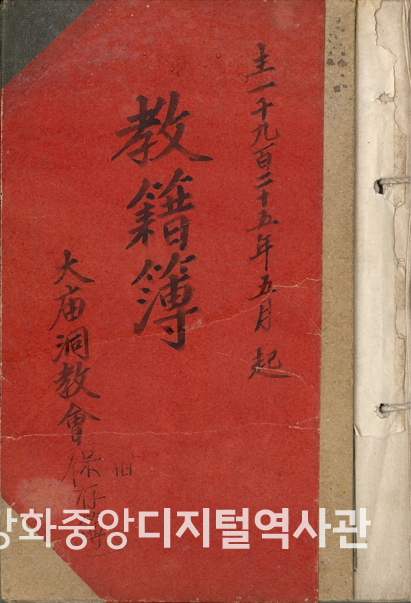 主一千九百二十五年五月 起
教籍簿
大庙洞教會
旧
保存
강화중앙디지털역사관